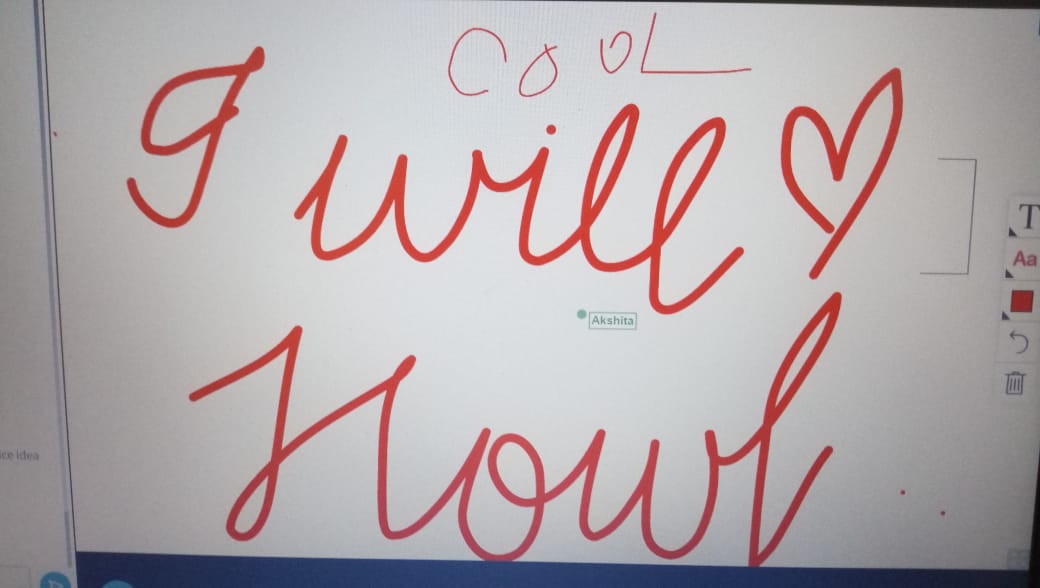 COOL
I will
T
Aa
Akshita
Howl
ice idea